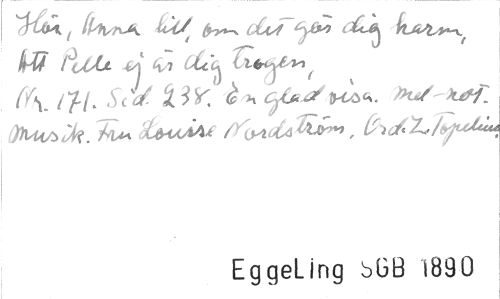 Hör, Anna lill, om det gör dig harm,
Att Pelle ej är dig trogen,
Nr. 171. Sid. 238. En glad visa. med-not.
musik. Fru Louise Nordström, Ord. Z. Topelius
EggeLing SGB 1890